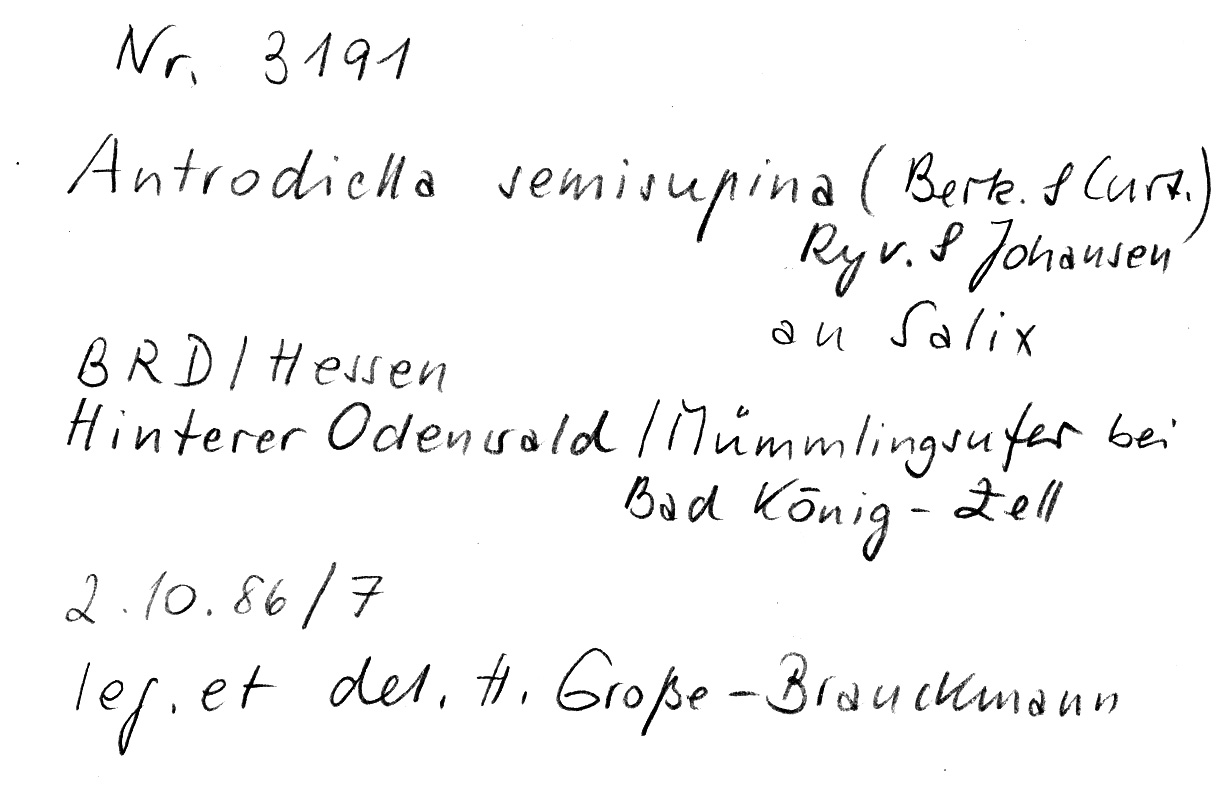 Nr. 3191
Antrodiella semisupina (Berk. & Curt.)
Ryv. & Johansen
an Salix
BRD/Hessen
Hinterer Odenwald/Mümmlingsufer bei
Bad König-Zell
2.10.86/7
leg. et det. H. Große-Brauckmann